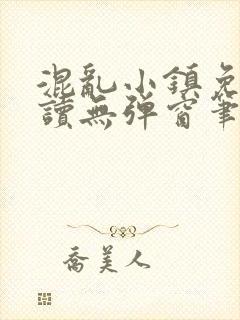 混亂小鎮免
讀無彈窗筆
喬美人